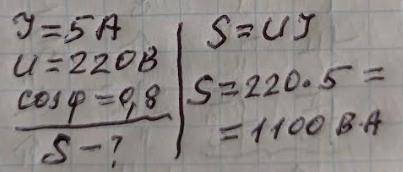 I = 5 A
U = 220 В
cos φ = 0,8
S - ?
S = UI
S = 220 · 5 =
= 1100 В·А